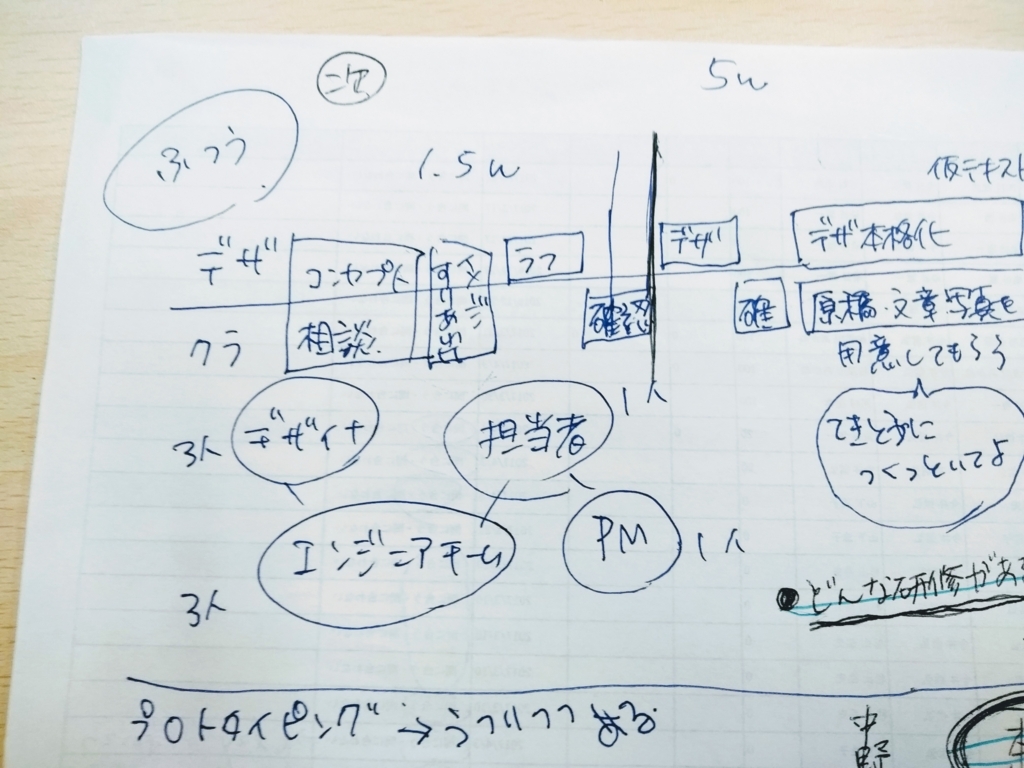 次
5w
ふつう
1.5w
仮テキスト
デザ
コンセプト
イメージ
すりあわせ
ラフ
デザ
デザ本格化
クラ
相談
確認
確
原稿・文章・写真を
用意してもらう
3人
デザイナ
担当者
1人
てきとうに
つくっといてよ
エンジニアチーム
PM
1人
3人
●どんな研修がある
プロトタイピング→
ある
中野